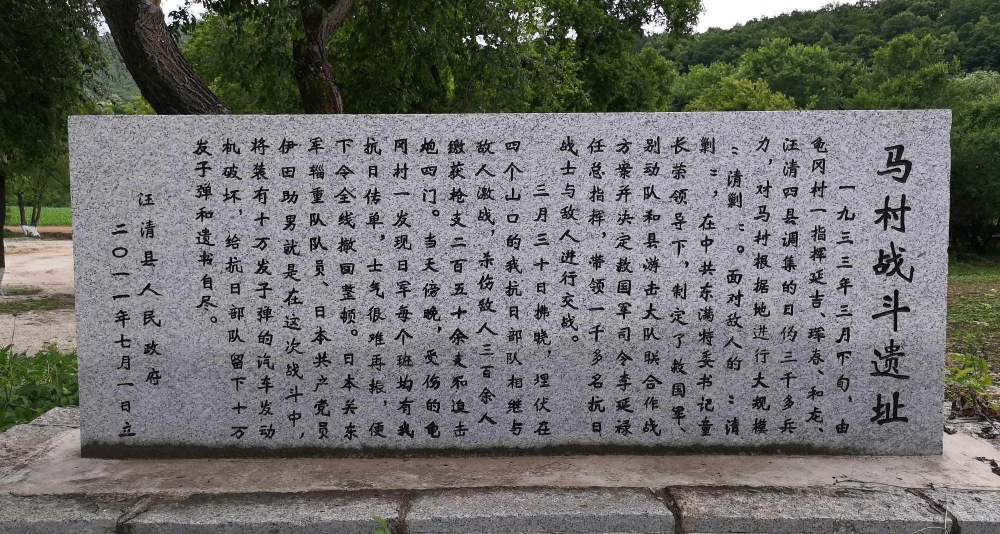 马村战斗遗址
一九三三年三月下旬，由
龟冈村一指挥延吉、珲春、和龙、
汪清四县调集的日伪三千多兵
力，对马村根据地进行大规模
“清剿”。面对敌人的“清
剿”，在中共东满特委书记童
长荣领导下，制定了救国军、
别动队和县游击大队联合作战
方案并决定救国军司令李延禄
任总指挥，带领一千多名抗日
战士与敌人进行交战。
三月三十日拂晓，埋伏在
四个山口的我抗日部队相继与
敌人激战，杀伤敌人三百余人
缴获枪支二百五十余支和迫击
炮四门。当天傍晚，受伤的龟
冈村一发现日军每个班均有我
抗日传单，士气很难再振，便
下令全线撤回整顿。日本关东
军辎重队队员、日本共产党员
伊田助男就是在这次战斗中，
将装有十万发子弹的汽车发动
机破坏，给抗日部队留下十万
发子弹和遗书自尽。
汪清县人民政府
二〇一一年七月一日立